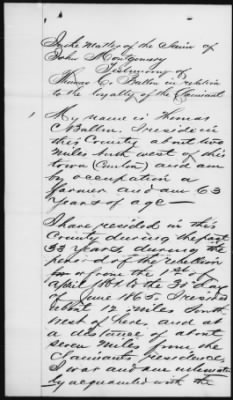 In the Matter of the Claim of
John Montgomery
Testimony of
Thomas C. Batten in relation
to the loyalty of the Claimant
1 My name is Thomas
C Batten. I reside in
this County about two
miles south west of this
town (Canton) and am
by occupation a
farmer and am 63
years of age —
I have resided in this
County during the past
33 years during the
period of the rebellion
from the 1st of
April 1861 to the 30 day
of June 1865, I resided
about 12 miles South
west of here, and at
a distance of about
seven miles from the
Claimants residence
I was and am intimate
ly acquainted with the